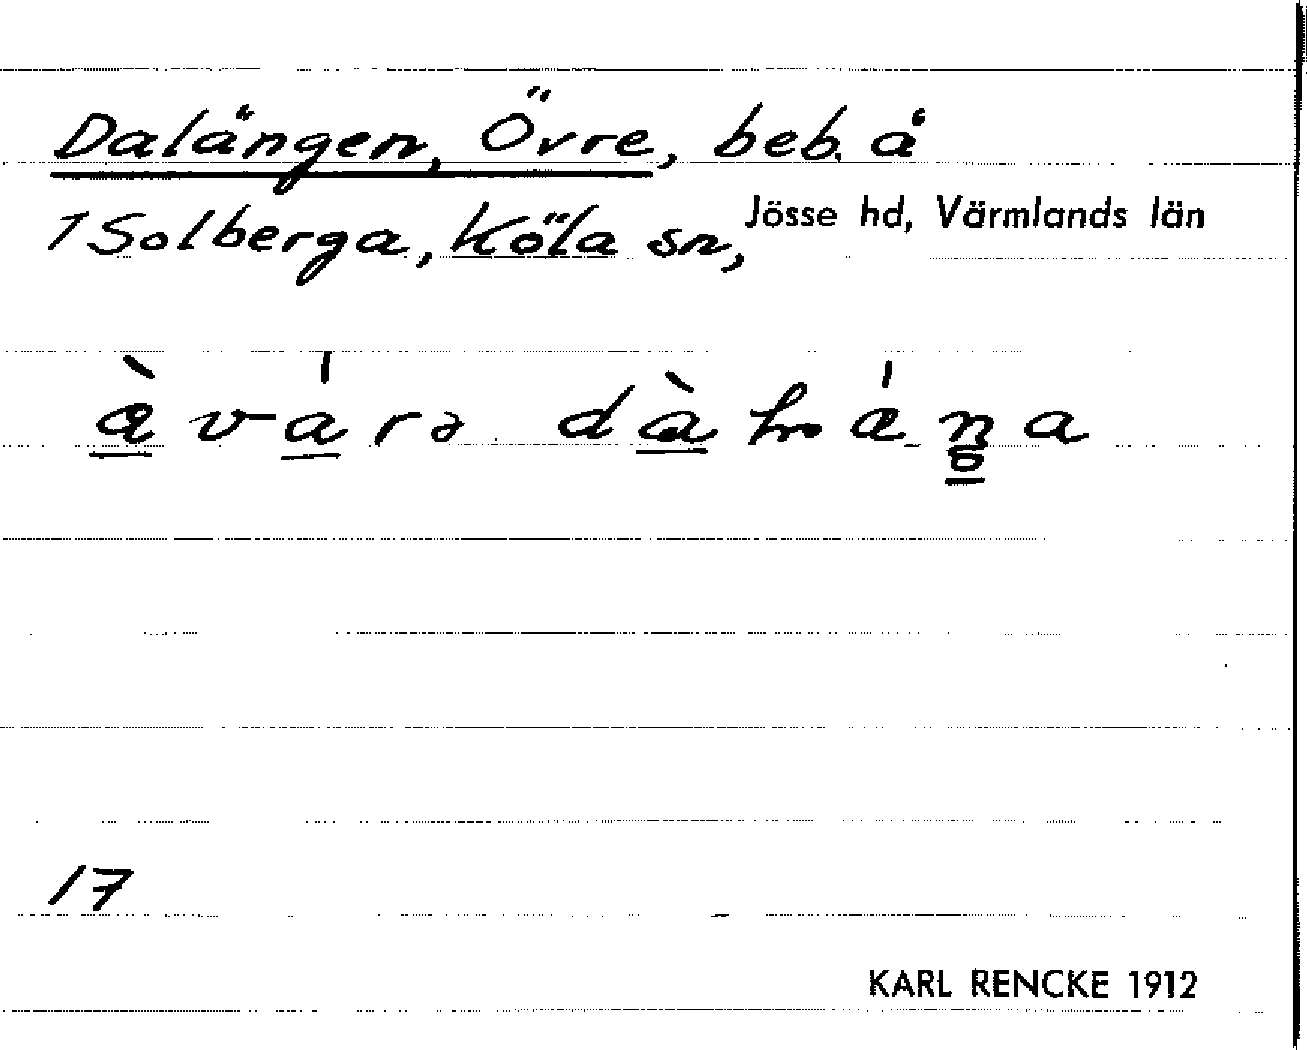 Dalängen, Övre, beb. å
1 Solberga, Köla sn, Jösse hd, Värmlands län
17
KARL RENCKE 1912